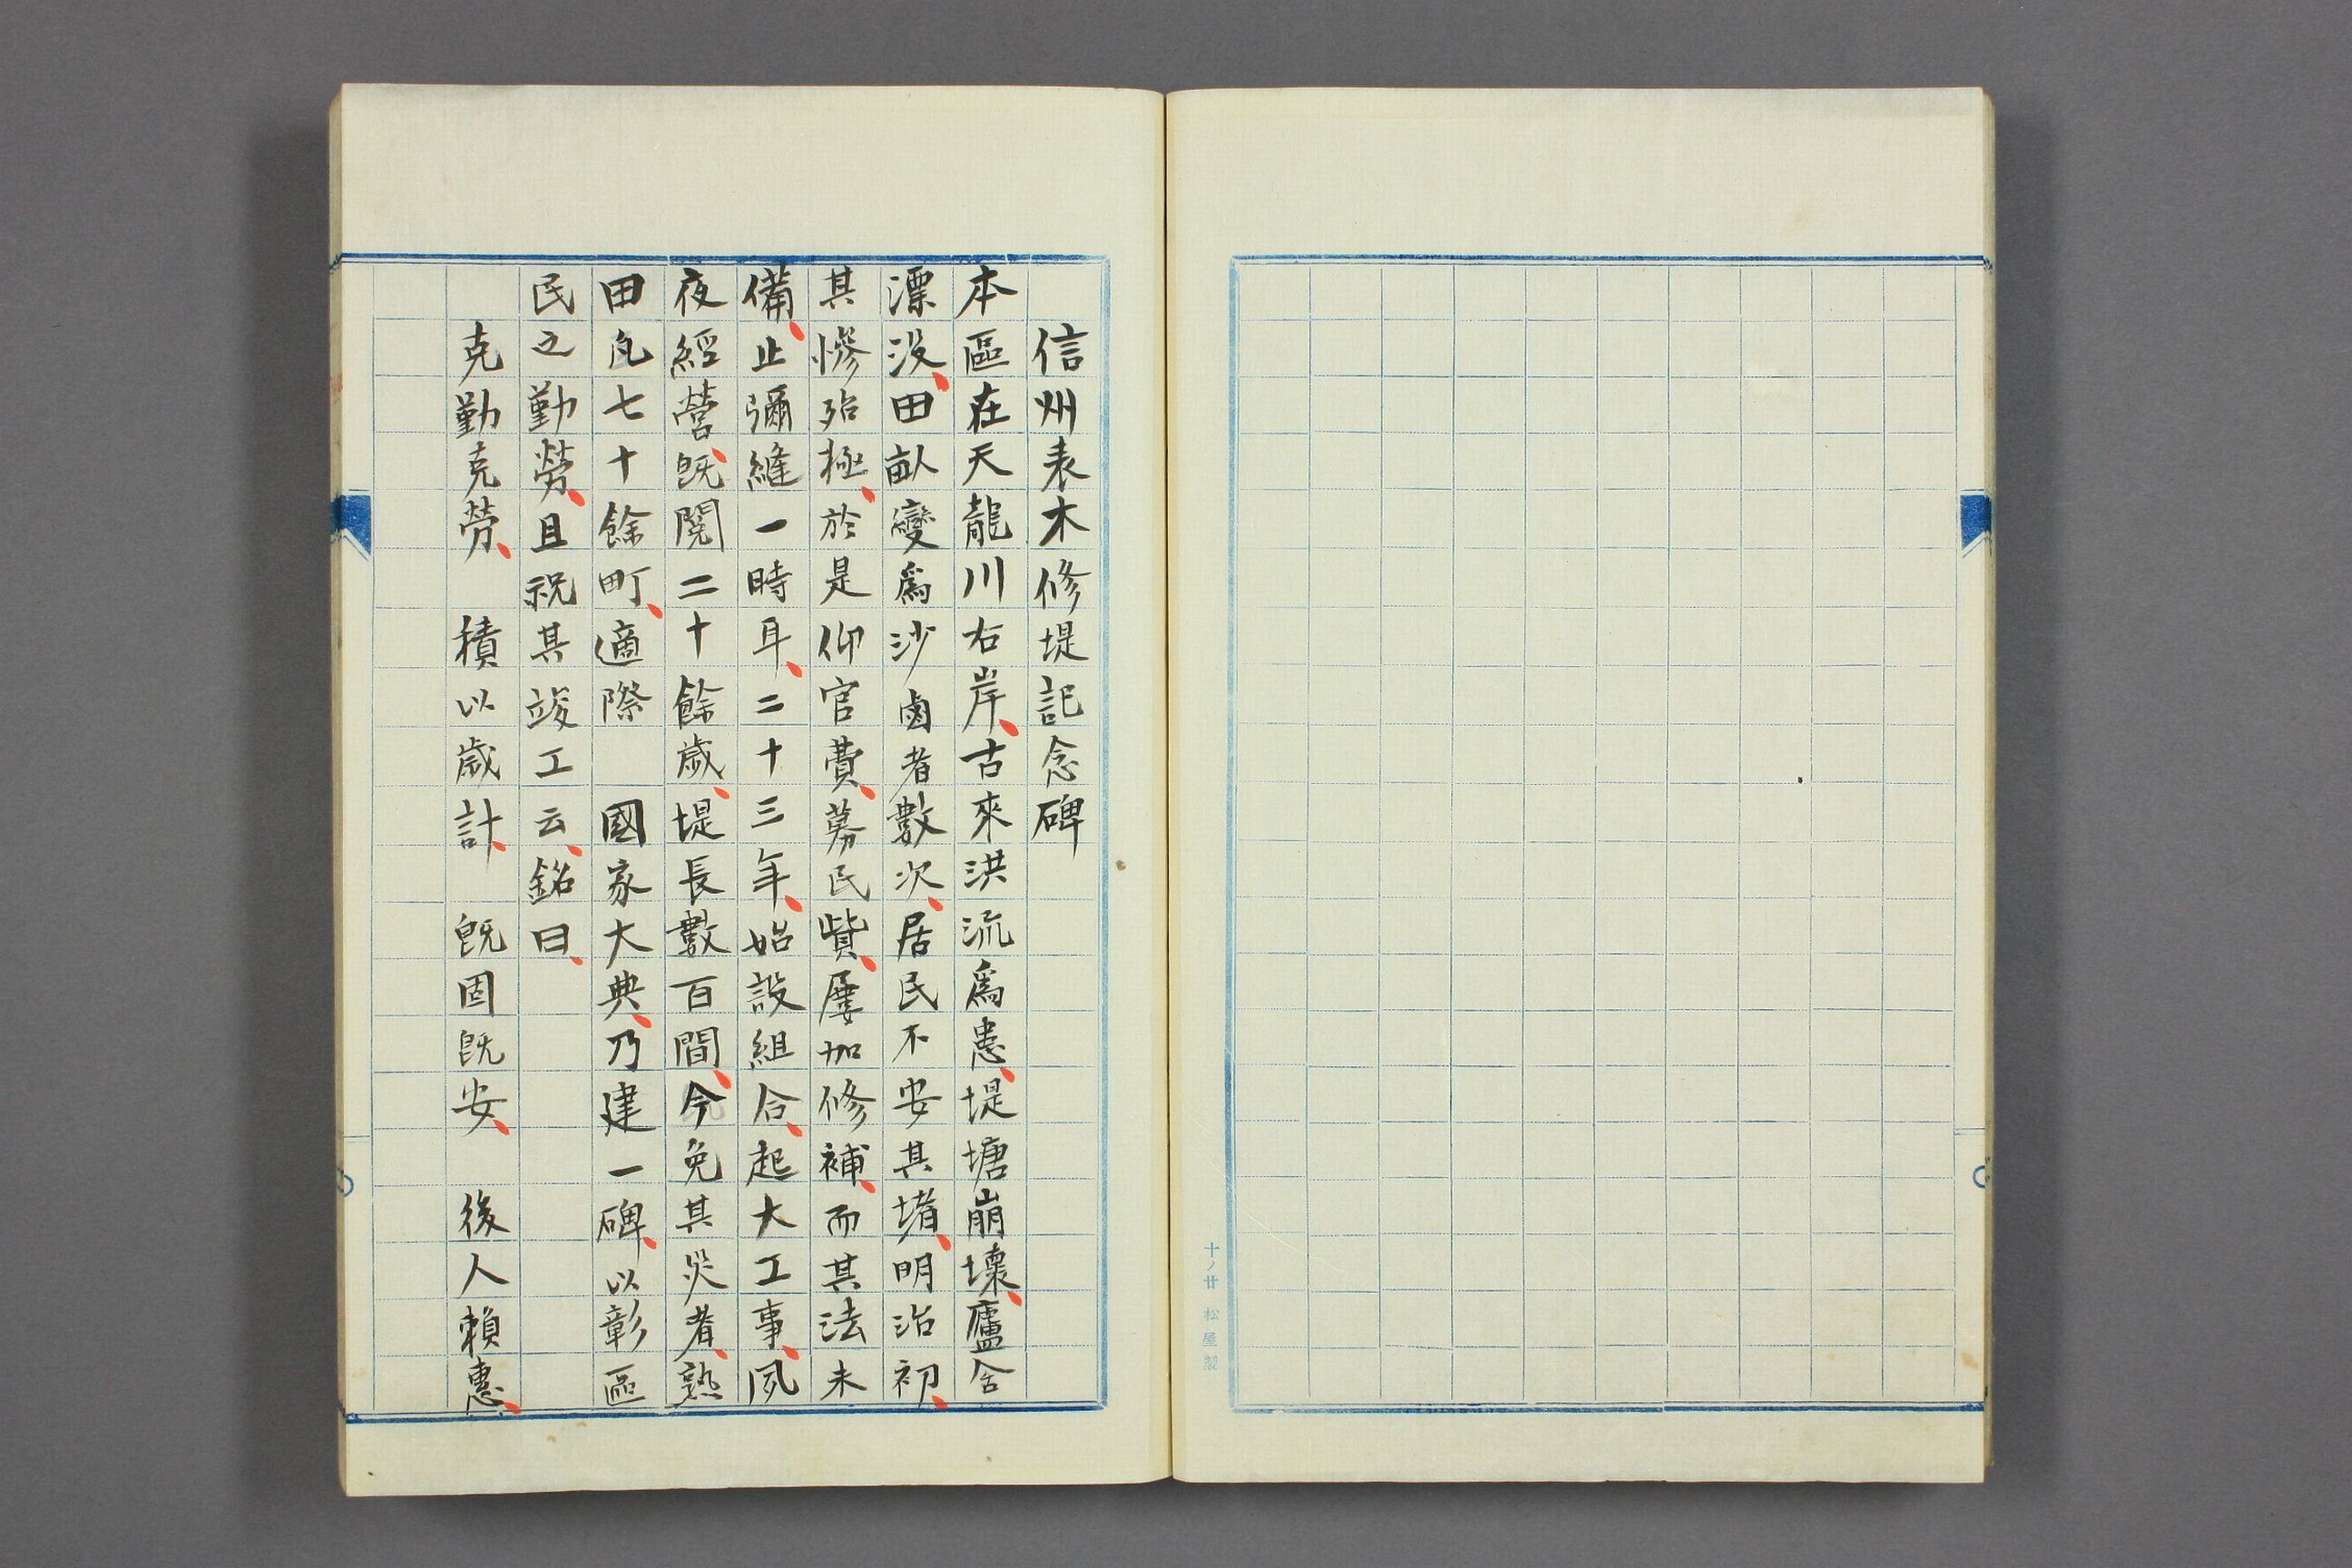 信州表木修堤記念碑
本區在天龍川右岸、古來洪流爲患、堤塘崩壞、廬舍
漂没、田畝變爲沙鹵者數次、居民不安其堵、明治初、
其慘殆極、於是仰官費、募民貲、屢加修補、而其法未
備、止彌縫一時耳、二十三年、始設組合、起大工事、夙
夜經營、既閱二十餘歲、堤長數百間、今免其災者、熟
田凡七十餘町、適際　國家大典、乃建一碑、以彰區
民之勤勞、且祝其竣工云、銘曰、
克勤克勞、　積以歲計、　既固既安、　後人賴惠、
十ノ廿 松屋製